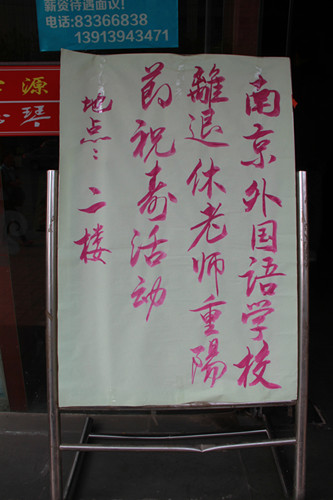 薪资待遇面议!
电话:83366838
13913943471
源
琴
南京外国语学校
離退休老师重陽
節祝寿活动
地点:二楼